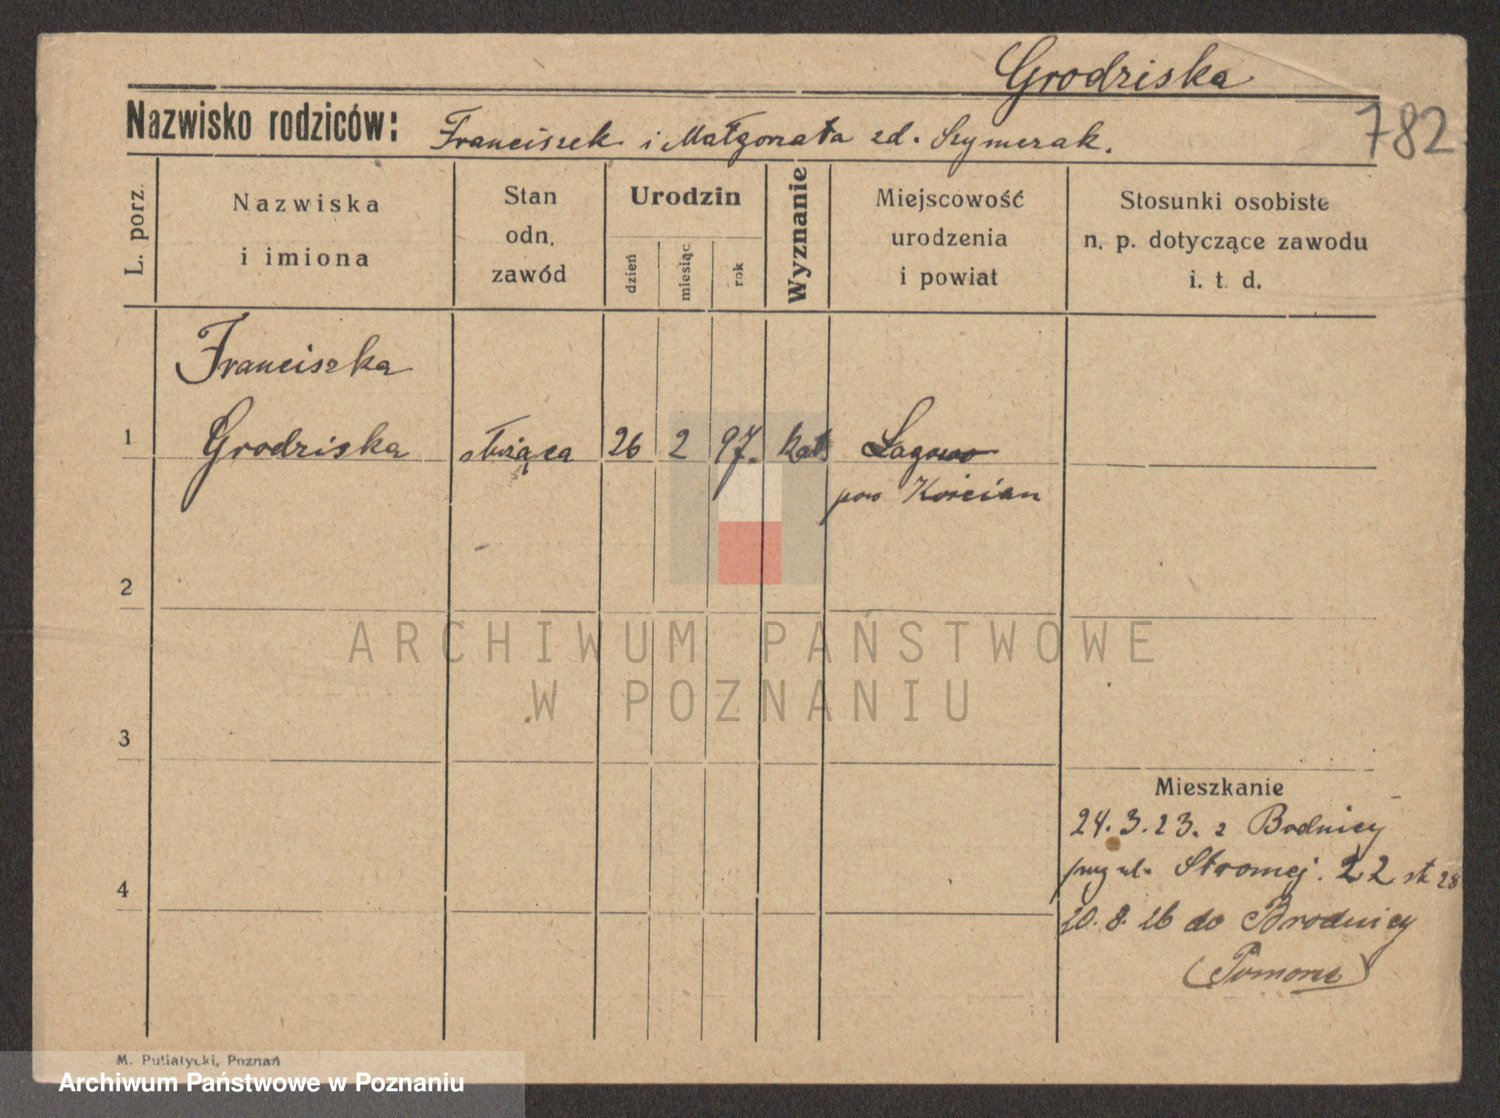 Grodziska
782
Nazwisko rodziców: Franciszek i Małgorzata zd. Szymczak.
L. porz.
Nazwiska
i imiona
Stan
odn.
zawód
Urodzin
dzień
miesiąc
rok
Wyznanie
Miejscowość
urodzenia
i powiat
Stosunki osobiste
n. p. dotyczące zawodu
i. t. d.
Franciszka
1 Grodziska służąca 26 2 97. kat. Łagowo
pow Kościan
2
3
4
Mieszkanie
24.3.23. z Bodnicy
przy ul. Stromej. 22
20.8.26 do Brodnicy
(Pomorze)
ARCHIWUM PAŃSTWOWE
W POZNANIU
M. Putiatycki, Poznań
Archiwum Państwowe w Poznaniu